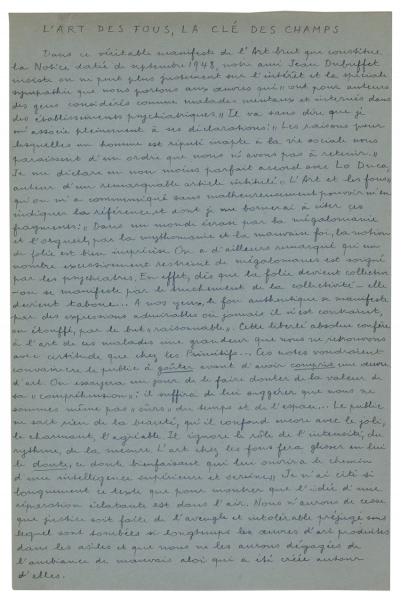 L'ART DES FOUS, LA CLÉ DES CHAMPS
Dans ce véritable manifeste de l'Art brut que constitue
la Notice datée de septembre 1948, notre ami Jean Dubuffet
insiste on ne peut plus justement sur l'intérêt et la spéciale
sympathie que nous portons aux œuvres qui "ont pour auteurs
des gens considérés comme malades mentaux et internés dans
des établissements psychiatriques." Il va sans dire que je
m'associe pleinement à ses déclarations: "Les raisons pour
lesquelles un homme est réputé inapte à la vie sociale nous
paraissent d'un ordre que nous n'avons pas à retenir."
Je me déclare en non moins parfait accord avec Lo Duca,
auteur d'un remarquable article intitulé "L'Art et les fous",
qu'on m'a communiqué sans malheureusement pouvoir m'en
indiquer la référence, et dont je me bornerai à citer ces
fragments: "Dans un monde écrasé par la mégalomanie
et l'orgueil, par la mythomanie et la mauvaise foi, la notion
de folie est bien imprécise. On a d'ailleurs remarqué qu'un
nombre excessivement restreint de mégalomanes est soigné
par les psychiatres. En effet, dès que la folie devient collective
– ou se manifeste par le truchement de la collectivité – elle
devient taboue... A nos yeux, le fou authentique se manifeste
par des expressions admirables où jamais il n'est contraint,
ou étouffé, par le but "raisonnable". Cette liberté absolue confère
à l'art de ces malades une grandeur que nous ne retrouvons
avec certitude que chez les Primitifs... Ces notes voudraient
convaincre le public à goûter avant d'avoir compris une œuvre
d'art. On essayera un jour de le faire douter de la valeur de
sa "compréhension": il suffira de lui suggérer que nous ne
sommes même pas "sûrs" du temps et de l'espace... Le public
ne sait rien de la beauté, qu'il confond encore avec le joli,
le charmant, l'agréable. Il ignore le rôle de l'intensité, du
rythme, de la mesure. L'art chez les fous fera glisser en lui
le doute, ce doute bienfaisant qui lui ouvrira le chemin
d'une intelligence supérieure et sereine." Je n'ai cité si
longuement ce texte que pour montrer que l'idée d'une
réparation éclatante est dans l'air. Nous n'aurons de cesse
que justice soit faite de l'aveugle et intolérable préjugé sous
lequel sont tombées si longtemps les œuvres d'art produites
dans les asiles et que nous ne les aurons dégagées de
l'ambiance de mauvais aloi qui a été créée autour
d'elles.